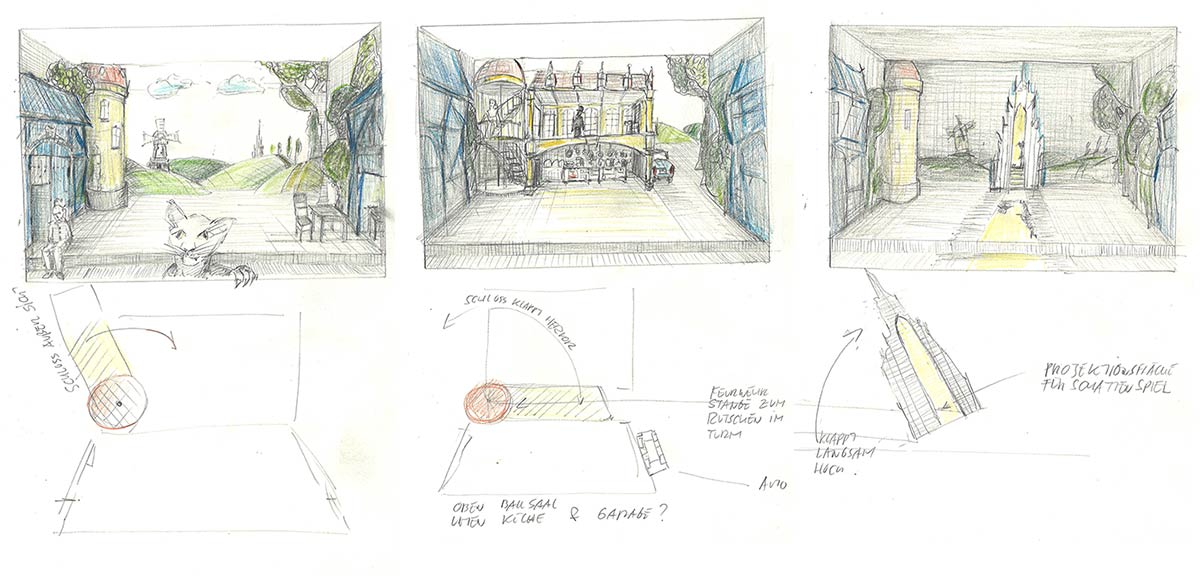 SCHLOSS AUßER SICHT
SCHLOSS KLAPPT HERVOR
FEUERWEHR
STANGE ZUM
RUTSCHEN IM
TURM
AUTO
OBEN BALLSAAL
UNTEN KÜCHE & GARAGE?
KLAPPT
LANGSAM
HOCH.
PROJEKTIONSFLÄCHE
FÜR SCHATTENSPIEL